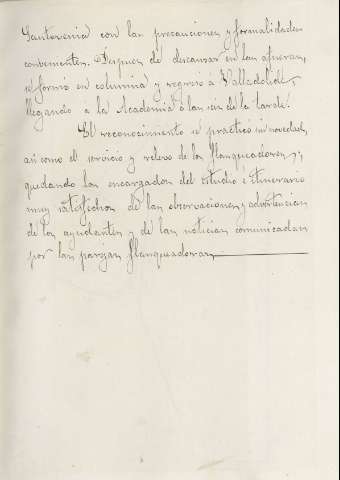 Santovenia con las precauciones y formalidades
convenientes. Despues de descansar en las afueras,
se formó en columna y regresó á Valladolid,
llegando á la Academia á las seis de la tarde.
El reconocimiento se practicó sin novedad,
asi como el servicio y relevo de los flanqueadores,
quedando los encargados del estudio é itinerario
muy satisfechos de las observaciones y advertencias
de los ayudantes y de las noticias comunicadas
por las parejas flanqueadoras